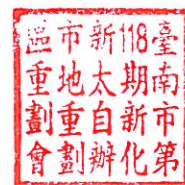 臺南市第
118期新化
新太自辦
市地重劃
區重劃會